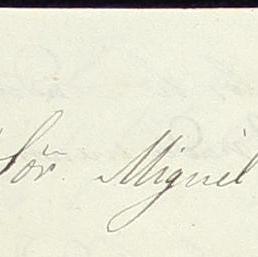 Sõr. Miguel